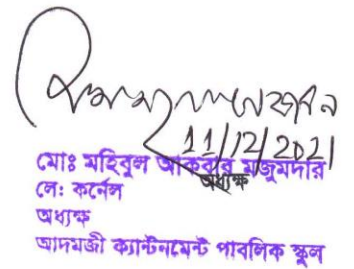 11/12/2021
মোঃ মহিবুল আকবার মজুমদার
অধ্যক্ষ
লে: কর্নেল
অধ্যক্ষ
আদমজী ক্যান্টনমেন্ট পাবলিক স্কুল